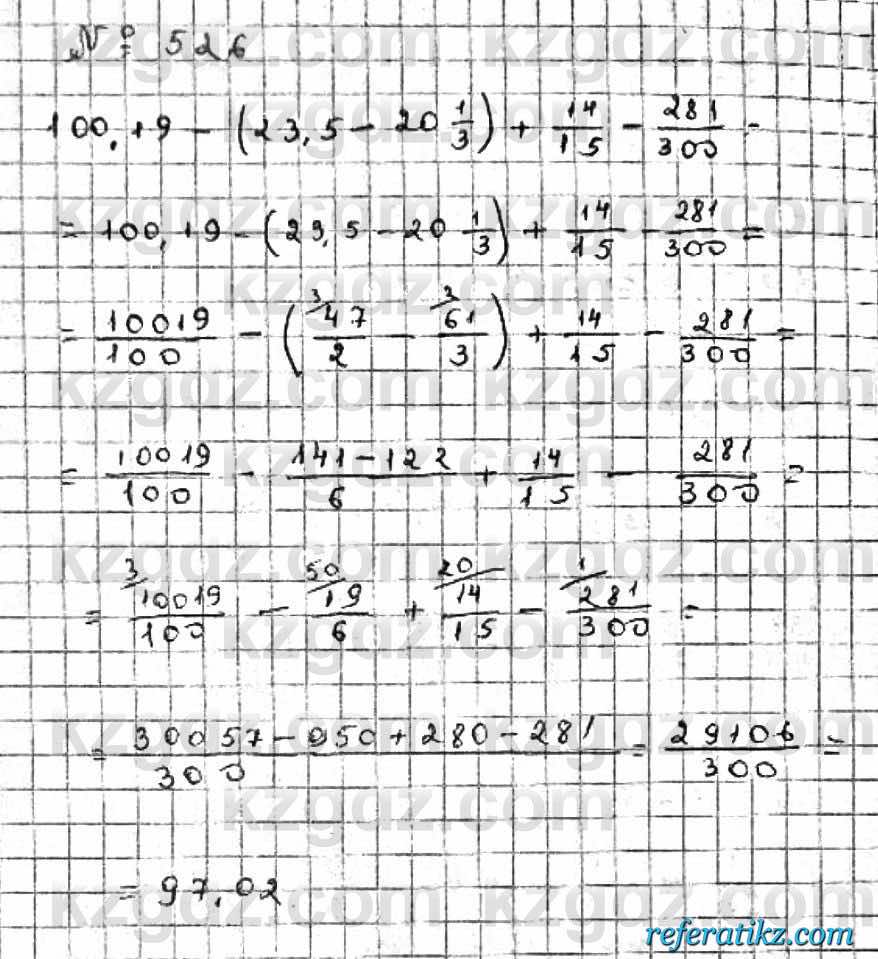 № 526
100,19 - (23,5 - 20 1/3) + 14/15 - 281/300 =
= 100,19 - (23,5 - 20 1/3) + 14/15 - 281/300 =
= 10019/100 - (3/ 47/2 - 2/ 61/3) + 14/15 - 281/300 =
= 10019/100 - 141-122/6 + 14/15 - 281/300 =
= 3/ 10019/100 - 50/ 19/6 + 20/ 14/15 - 1/ 281/300 =
= 30057 - 950 + 280 - 281/300 = 29106/300 =
= 97,02
kzgdz.com
referatikz.com